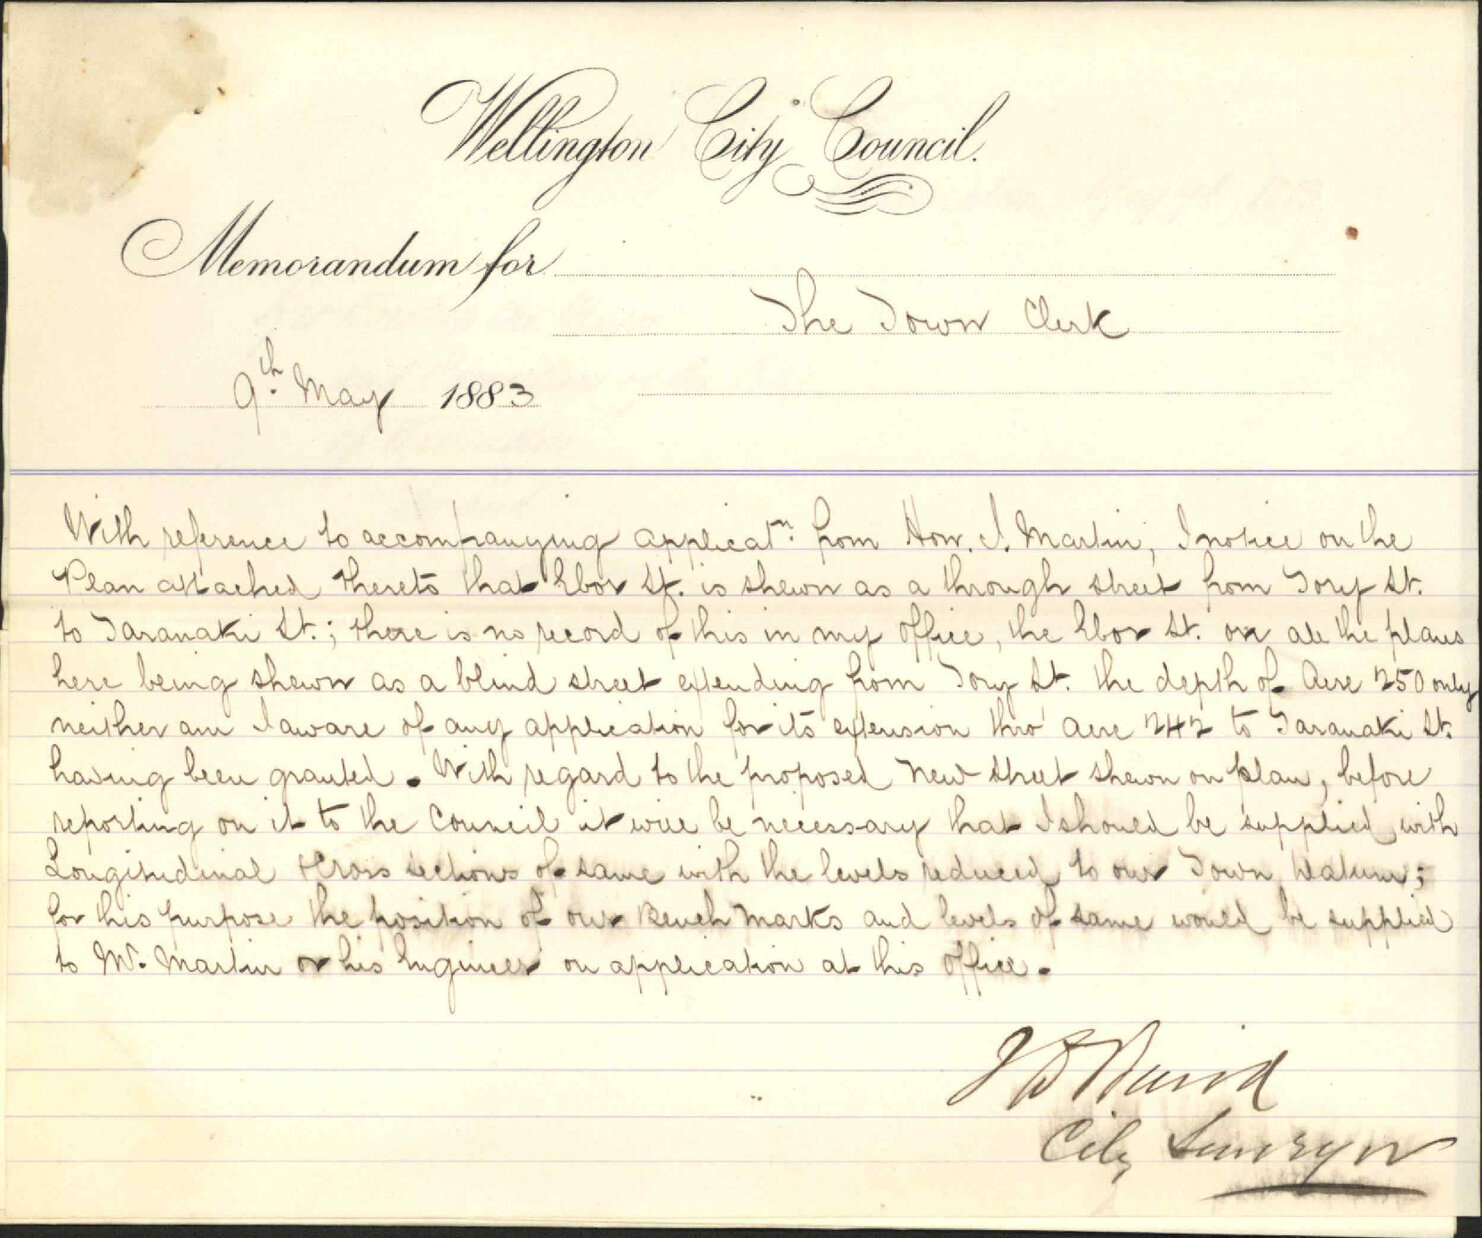 Wellington City Council.
Memorandum for
The Town Clerk
9th. May 1883
With reference to accompanying applicatn. from Hon. J. Martin, I notice on the
Plan attached thereto that Ebor St. is shewn as a through street from Tory St.
to Taranaki St.; there is no record of this in my office, the Ebor St. on all the plans
here being shewn as a blind street extending from Tory St. the depth of Acre 250 only
neither am I aware of any application for its extension thro' Acre 242 to Taranaki St.
having been granted. With regard to the proposed new street shewn on plan, before
reporting on it to the Council it will be necessary that I should be supplied with
Longitudinal & Cross sections of same with the levels reduced to our Town Datum;
for this purpose the position of our Bench Marks and levels of same would be supplied
to Mr. Martin or his Engineer on application at this office.
J D Baird
City Surveyor